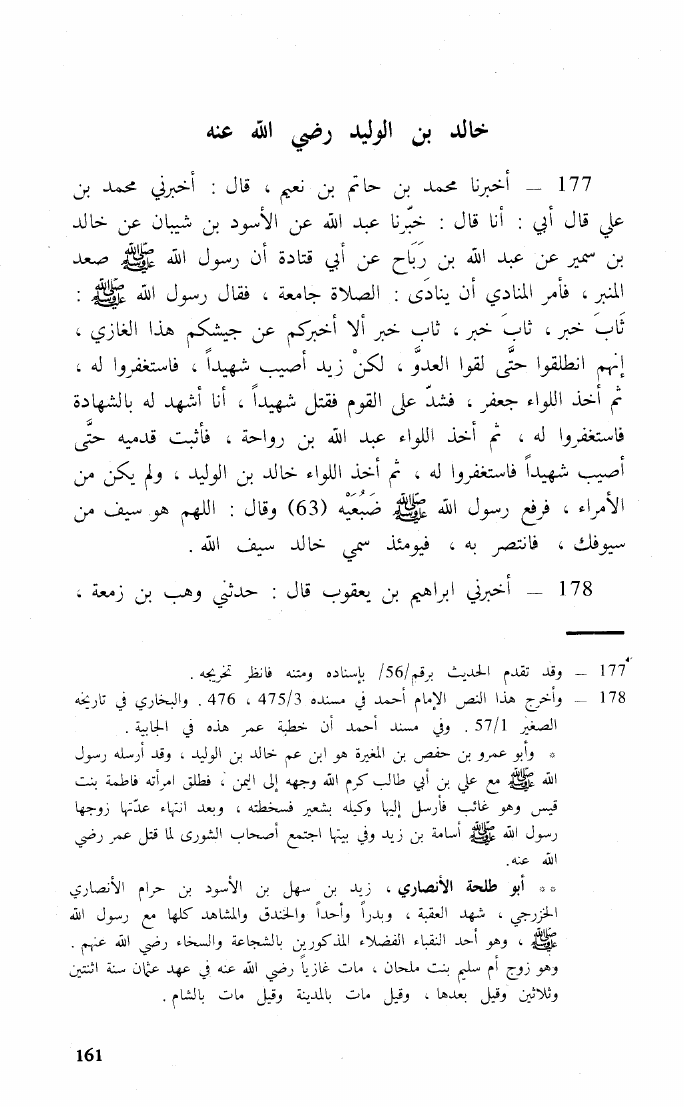 خالد بن الوليد رضي الله عنه
177 — أخبرنا محمد بن حاتم بن نعيم ، قال : أخبرني محمد بن
علي قال أبي : أنا قال : خبّرنا عبد الله عن الأسود بن شيبان عن خالد
بن سمير عن عبد الله بن رَبَاح عن أبي قتادة أن رسول الله ﷺ صعد
المنبر ، فأمر المنادي أن ينادَى : الصلاة جامعة ، فقال رسول الله ﷺ :
ثَابَ خبر ، ثاب خبر ، ثاب خبر ألا أخبركم عن جيشكم هذا الغازي ،
إنهم انطلقوا حتَّى لقوا العدوَّ ، لكنْ زيد أصيب شهيداً ، فاستغفروا له ،
ثم أخذ اللواء جعفر ، فشدّ على القوم فقتل شهيداً ، أنا أشهد له بالشهادة
فاستغفروا له ، ثم أخذ اللواء عبد الله بن رواحة ، فأثبت قدميه حتَّى
أصيب شهيداً فاستغفروا له ، ثم أخذ اللواء خالد بن الوليد ، ولم يكن من
الأمراء ، فرفع رسول الله ﷺ ضَبُعَيْه (63) وقال : اللهم هو سيف من
سيوفك ، فانتصر به ، فيومئذ سمي خالد سيف الله .
178 — أخبرني ابراهيم بن يعقوب قال : حدثني وهب بن زمعة ،
177 — وقد تقدم الحديث برقم/56/ بإسناده ومتنه فانظر تخريجه .
178 — وأخرج هذا النص الإمام أحمد في مسنده 475/3 ، 476 . والبخاري في تاريخه
الصغير 57/1 . وفي مسند أحمد أن خطبة عمر هذه في الجابية .
* وأبو عمرو بن حفص بن المغيرة هو ابن عم خالد بن الوليد ، وقد أرسله رسول
الله ﷺ مع علي بن أبي طالب كرم الله وجهه إلى اليمن ، فطلق امرأته فاطمة بنت
قيس وهو غائب فأرسل إليها وكيله بشعير فسخطته ، وبعد انتهاء عدّتها زوجها
رسول الله ﷺ أسامة بن زيد وفي بيتها اجتمع أصحاب الشورى لما قتل عمر رضي
الله عنه.
** أبو طلحة الأنصاري ، زيد بن سهل بن الأسود بن حرام الأنصاري
الخزرجي ، شهد العقبة ، وبدراً وأحداً والخندق والمشاهد كلها مع رسول الله
ﷺ ، وهو أحد النقباء الفضلاء المذكورين بالشجاعة والسخاء رضي الله عنهم .
وهو زوج أم سليم بنت ملحان ، مات غازياً رضي الله عنه في عهد عثمان سنة اثنتين
وثلاثين وقيل بعدها ، وقيل مات بالمدينة وقيل مات بالشام .
161